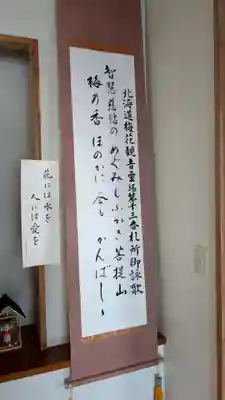 北海道梅花観音霊場第十三番札所御詠歌
智慧慈悲の めぐみもふかき 菩提山
梅の香 ほのかに 今も かんばしゝ
花には水を
人には愛を